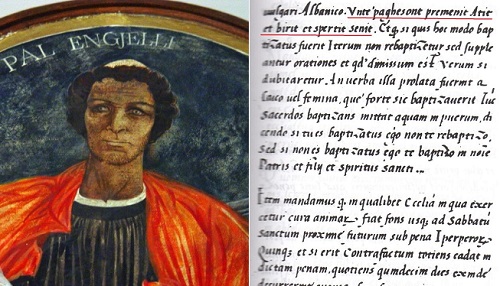 PAL ENGJELLI
vulgari. Albanico. Vnte' paghesont premenit Atit
et birit et spertit senit. Et q, si quis hoc modo bap
tizatus fuerit Iterum non rebaptizetur sed supple
antur orationes et qd' dimissum est. Verum si
dubitaretur. An uerba illa prolata fuerint a
laico uel femina, que' forte sic baptizauerit Tuc
Sacerdos baptizans mittat aquam in puerum, di
cendo si tu es baptizatus ego non te rebaptizo,
Sed si non es baptizatus Ego te baptizo in noie
Patris et filij et Spiritus Sancti...
Item mandamus q, in qualibet Ecclia in qua exer
cetur cura animar fiat fons usq, ad Sabbatu
Sanctum proxime futurum sub pena Iperperor
Quinq, et si erit Contrafactum totiens cadat in
dictam penam, quotiens quindecim dies exemde